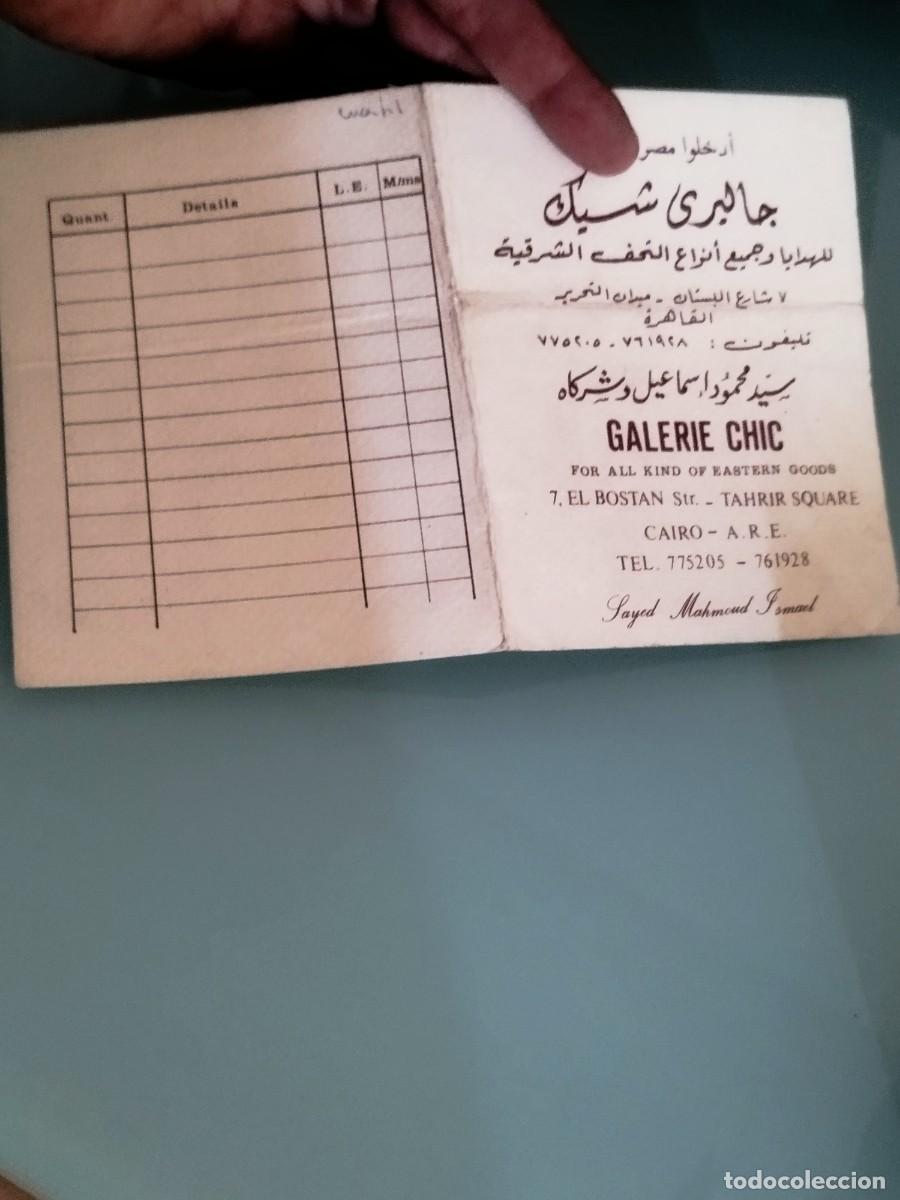 Quant.
Details
L.E.
M/ms
أدخلوا مصر
جاليرى شيك
للهدايا وجميع أنواع التحف الشرقية
٧ شارع البستان - ميدان التحرير
القاهرة
تليفون : ٧٦١٩٢٨ - ٧٧٥٢٠٥
سيد محمود اسماعيل وشركاه
GALERIE CHIC
FOR ALL KIND OF EASTERN GOODS
7, EL BOSTAN Str. - TAHRIR SQUARE
CAIRO - A.R.E.
TEL. 775205 - 761928
Sayed Mahmoud Ismael
todocoleccion